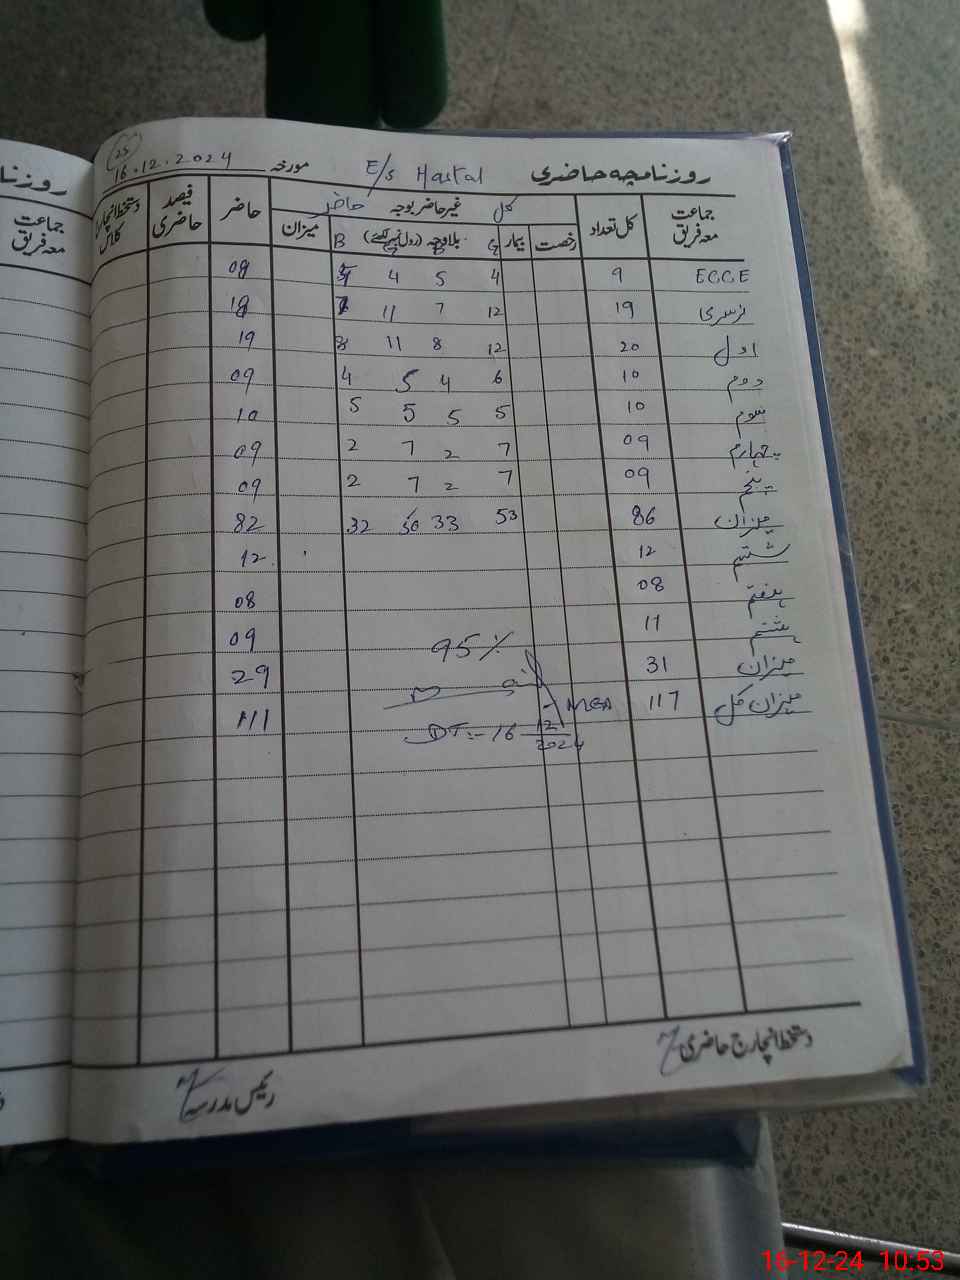 25
روزنامچہ حاضری E/s Hastal مورخہ 16.12.2024
جماعت معہ فریق کل تعداد کل غیر حاضر بوجہ حاضر حاضر فیصد حاضری دستخط انچارج کلاس
رخصت بیمار بلاوجہ (رول نمبر لکھئے) B میزان
ECCE 9 4 5 4 08
نرسری 19 12 7 11 18
اول 20 12 8 11 19
دوم 10 6 4 5 4 09
سوم 10 5 5 5 5 10
چہارم 09 7 2 7 2 09
پنجم 09 7 2 7 2 09
میزان 86 53 33 50 32 82
ششم 12 12
ہفتم 08 08
ہشتم 11 09
میزان 31 29
میزان کل 117 111
95 %
MEA
DT:- 16 12 2024
دستخط انچارج حاضری
رئیس مدرسہ
روزنا
جماعت معہ فریق
16-12-24 10:53